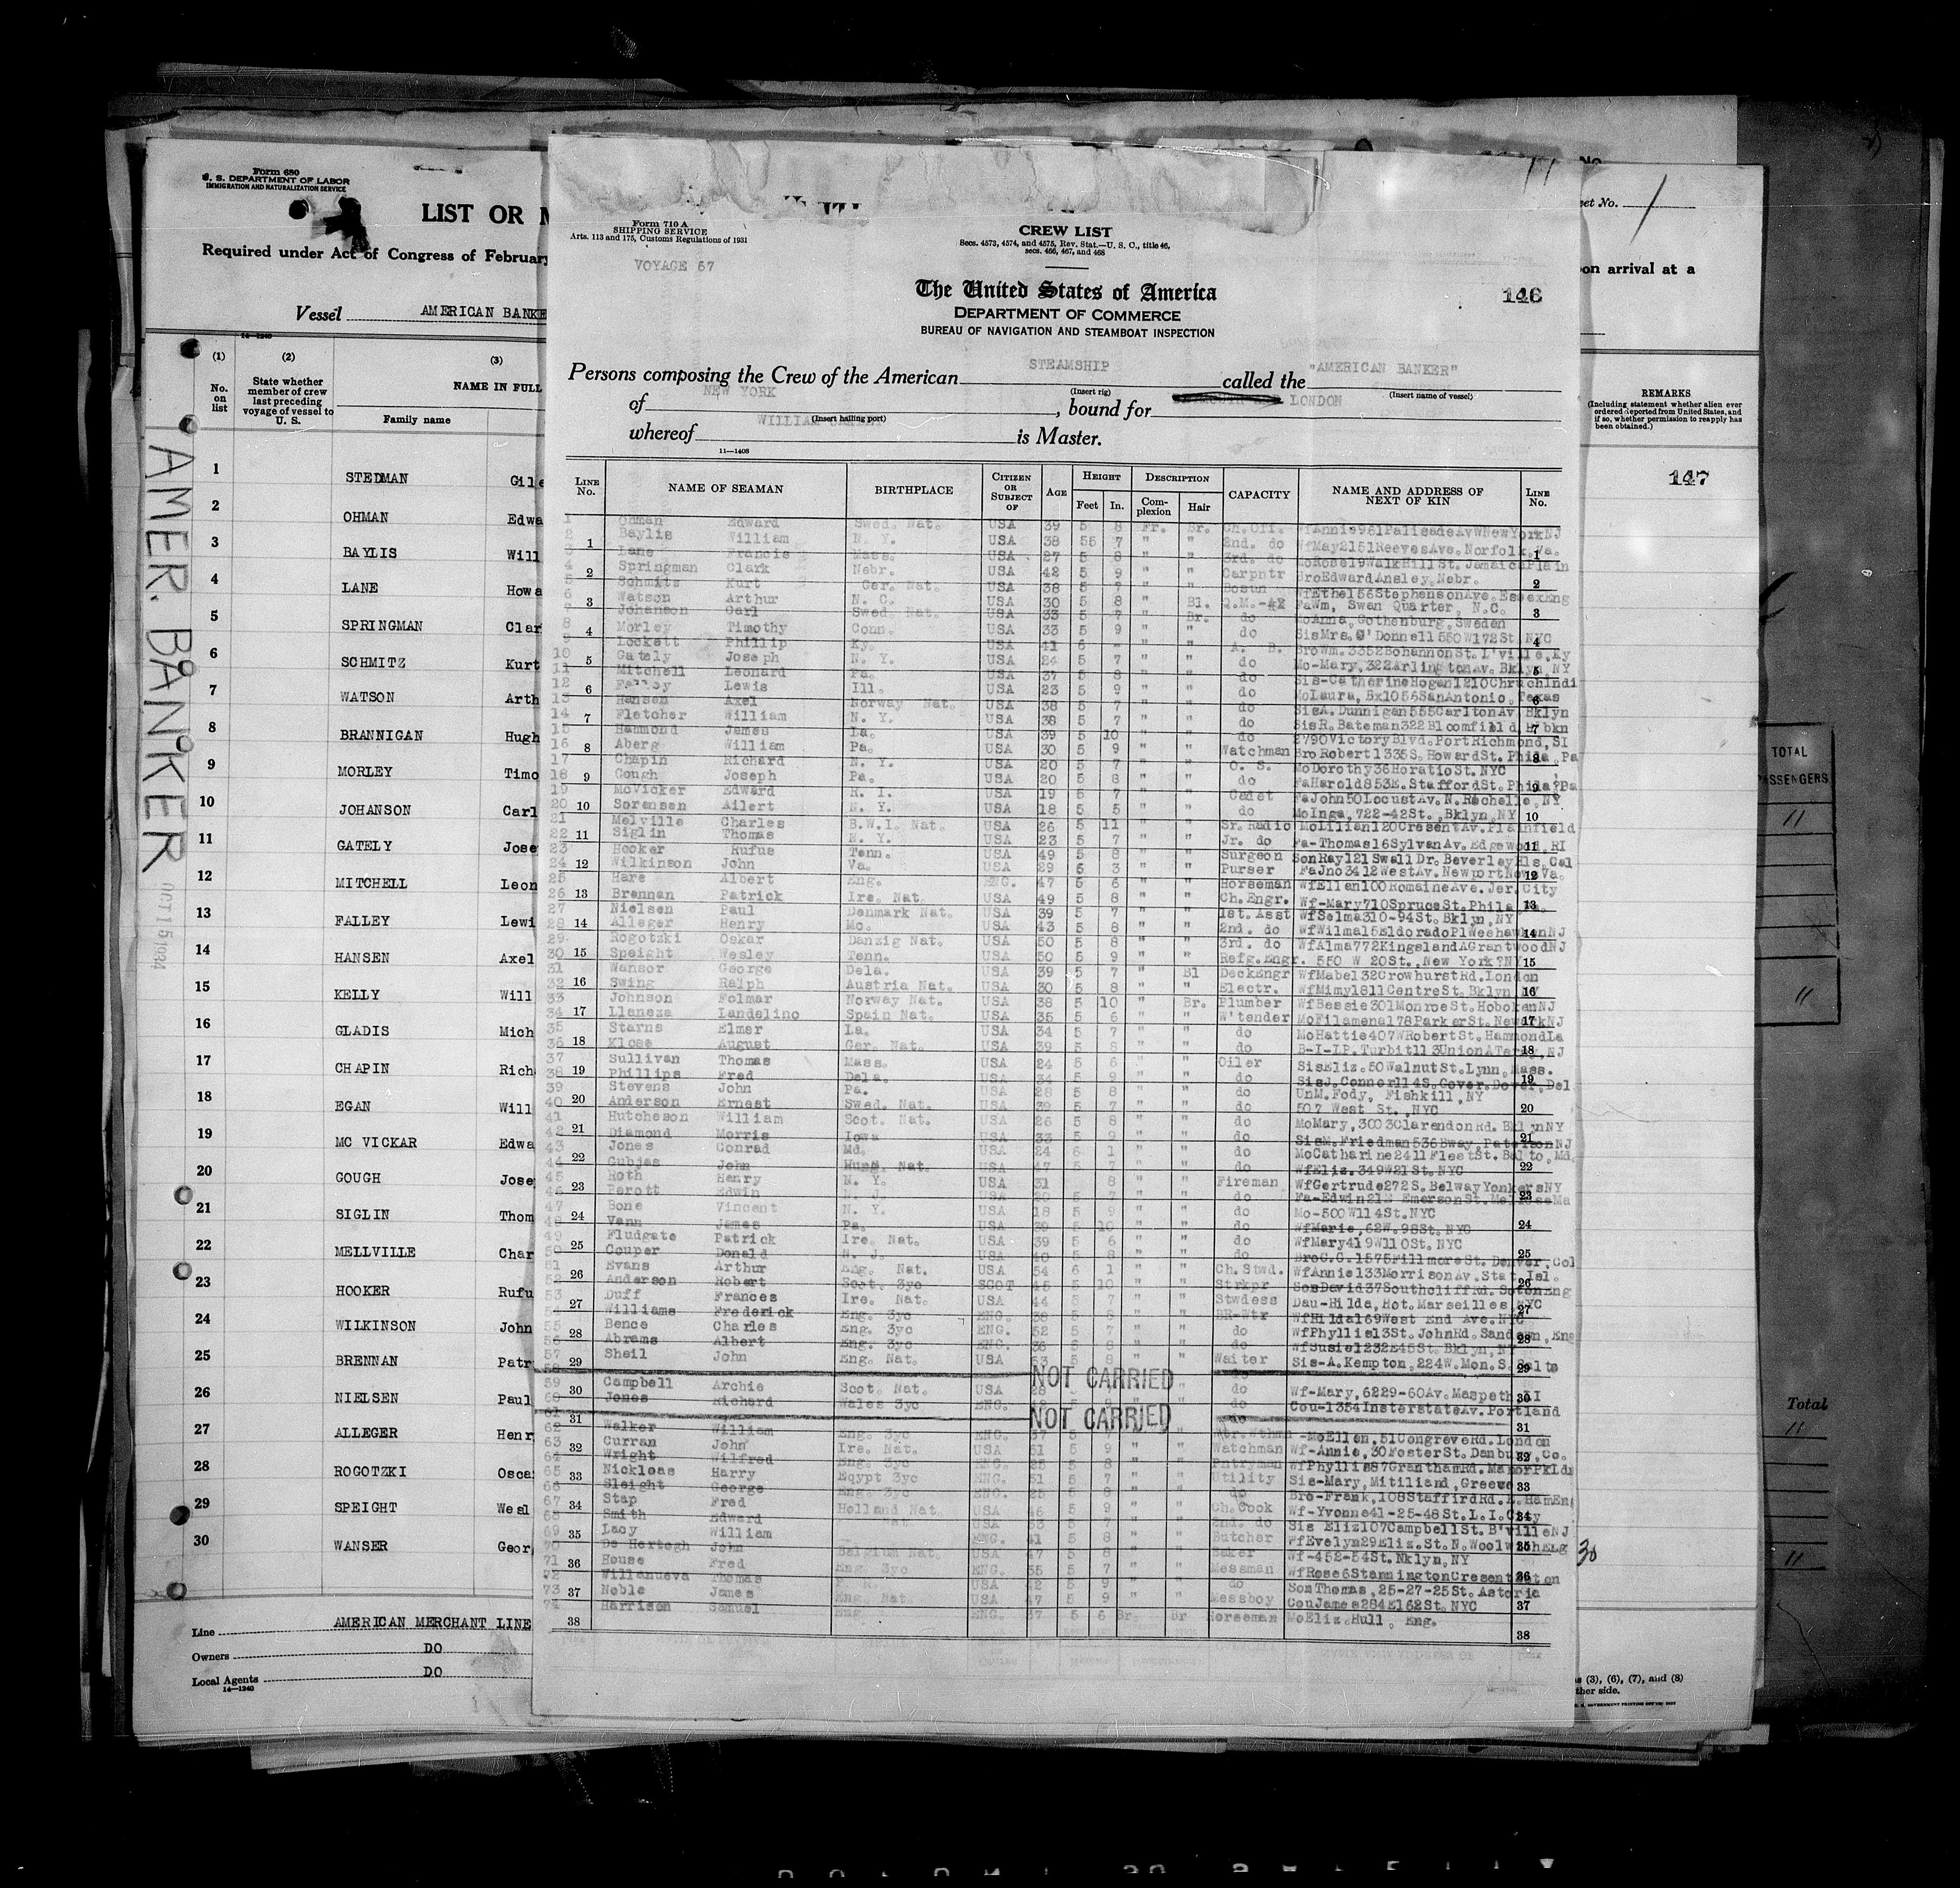 Form 680
U. S. DEPARTMENT OF LABOR
IMMIGRATION AND NATURALIZATION SERVICE
LIST OR
Required under Act of Congress of February
Vessel AMERICAN BANKE
14—1240
(1) (2) (3)
No. on list
State whether member of crew last preceding voyage of vessel to U. S.
NAME IN FULL
Family name
1 STEDMAN Gile
2 OHMAN Edwa
3 BAYLIS Will
4 LANE Howa
5 SPRINGMAN Clar
6 SCHMITZ Kurt
7 WATSON Arth
8 BRANNIGAN Hugh
9 MORLEY Timo
10 JOHANSON Carl
11 GATELY Jose
12 MITCHELL Leon
13 FALLEY Lewi
14 HANSEN Axel
15 KELLY Will
16 GLADIS Mich
17 CHAPIN Rich
18 EGAN Will
19 MC VICKAR Edwa
20 GOUGH Jose
21 SIGLIN Thom
22 MELLVILLE Char
23 HOOKER Rufu
24 WILKINSON John
25 BRENNAN Patr
26 NIELSEN Paul
27 ALLEGER Henr
28 ROGOTZKI Osca
29 SPEIGHT Wesl
30 WANSER Geor
Line AMERICAN MERCHANT LINE
Owners DO
Local Agents DO
14—1240
AMER. BANKER
OCT 15 1934
Form 710 A
SHIPPING SERVICE
Arts. 113 and 175, Customs Regulations of 1931
VOYAGE 67
CREW LIST
Secs. 4573, 4574, and 4575, Rev. Stat.—U. S. C., title 46,
secs. 466, 467, and 468
The United States of America
DEPARTMENT OF COMMERCE
BUREAU OF NAVIGATION AND STEAMBOAT INSPECTION
146
Persons composing the Crew of the American STEAMSHIP called the "AMERICAN BANKER"
(Insert rig) (Insert name of vessel)
of NEW YORK, bound for LONDON
(Insert hailing port)
whereof WILLIAM is Master.
11—1408
LINE No. NAME OF SEAMAN BIRTHPLACE CITIZEN OR SUBJECT OF AGE HEIGHT Feet In. DESCRIPTION Complexion Hair CAPACITY NAME AND ADDRESS OF NEXT OF KIN LINE No.
1 Ohman Edward Swed. Nat. USA 39 5 8 Fr. Br. Ch. Off. WfAnnie961PalisadeAvWNewYorkNJ
2 Baylis William N. Y. USA 38 55 7 " " 2nd. do WfMay2151ReevesAve. Norfolk, Va.
3 Lane Francis Mass. USA 27 5 8 " " 3rd. do MoRose19WalkHillSt. JamaicaPlain
4 Springman Clark Nebr. USA 42 5 9 " " Carpntr BroEdwardAnsley, Nebr.
5 Schmitz Kurt Ger. Nat. USA 38 5 7 " " Bosun WfEthel56StephensonAve. EssexEng
6 Watson Arthur N. C. USA 30 5 8 " Bl. Q.M. FaWm, Swan Quarter, N.C.
7 Johanson Carl Swed. Nat. USA 33 5 7 " Br. do MoAnna, Gothenburg, Sweden
8 Morley Timothy Conn. USA 33 5 9 " " do SisMrs. O'Donnell550W172St. NYC
9 Lockett Phillip Ky. USA 41 6 - " " A. B. BroWm. 3352BohannonSt. L'ville, Ky
10 Gately Joseph N. Y. USA 24 5 7 " " do Mo-Mary, 322ArlingtonAv. Bklyn, NY
11 Mitchell Leonard Pa. USA 37 5 8 " " do Sis-CatherineHogan1210ChruchIndi
12 Falley Lewis Ill. USA 23 5 9 " " do MoLaura, Bx1056SanAntonio, Texas
13 Hansen Axel Norway Nat. USA 38 5 7 " " do SisA. Dunnigan555CarltonAv Bklyn
14 Fletcher William N. Y. USA 38 5 7 " " do SisR. Bateman322Bloomfield, Hbkn
15 Hammond James La. USA 39 5 10 " " do 2790VictoryBlvd. PortRichmond, SI
16 Aberg William Pa. USA 30 5 9 " " Watchman Bro Robert1335S. HowardSt. Phila, Pa
17 Chapin Richard N. Y. USA 20 5 7 " " O. S. MoDorothy36HoratioSt. NYC
18 Gough Joseph Pa. USA 20 5 8 " " do FaHarold853E. StaffordSt. Phila, Pa
19 McVicker Edward R. I. USA 19 5 7 " " Cadet FaJohn50LocustAv. N. Rochelle, NY
20 Sorensen Ailert N. Y. USA 18 5 5 " " do MoInga, 722-42St., Bklyn, NY
21 Melville Charles B.W.I. Nat. USA 26 5 11 " " Sr. Radio MoLilian120CresentAv. Plainfield
22 Siglin Thomas N. Y. USA 23 5 7 " " Jr. do Fa-Thomas16SylvanAv. Edgewood, RI
23 Hooker Rufus Tenn. USA 49 5 8 " " Surgeon SonRay121Swall Dr. BeverleyHls. Cal
24 Wilkinson John Va. USA 29 5 3 " " Purser FaJno3412WestAv. NewportNews Va.
25 Hare Albert Eng. ENG. 47 5 6 " " Horseman WfEllen100RomaineAve. Jer. City
26 Brennan Patrick Ire. Nat. USA 49 5 8 " " Ch. Engr. Wf-Mary710SpruceSt. Phila
27 Nielsen Paul Denmark Nat. USA 39 5 7 " " 1st. Asst WfSelma310-94St. Bklyn, NY
28 Alleger Henry Mo. USA 43 5 8 " " 2nd. do WfWilma15EldoradoPlWeehawkenNJ
29 Rogotzki Oskar Danzig Nat. USA 50 5 8 " " 3rd. do WfAlma772KingslandAGrantwoodNJ
30 Speight Wesley Tenn. USA 50 5 9 " " Refg. Engr. 550 W 20St., New York, NY
31 Wansor George Dela. USA 39 5 7 " Bl DeckEngr WfMabel32CrowhurstRd. London
32 Swing Ralph Austria Nat. USA 30 5 8 " " Electr. WfMimy1811CentreSt. Bklyn
33 Johnson Folmar Norway Nat. USA 38 5 10 " Br. Plumber WfBessie301MonroeSt. HobokenNJ
34 Llaneza Landelino Spain Nat. USA 35 5 6 " " W'tender MoFilamena178ParkerSt. NewarkNJ
35 Starns Elmer La. USA 34 5 7 " " do MoHattie407WRobertSt. HammondLa
36 Klose August Ger. Nat. USA 39 5 8 " " do B-I-LP. Turbitt113UnionA NJ
37 Sullivan Thomas Mass. USA 24 5 6 " " Oiler SisEliz. 50WalnutSt. Lynn, Mass.
38 Phillips Fred Dela. USA 34 5 9 " " do SisJ. Conner114S. Gover. Dover, Del
39 Stevens John Pa. USA 28 5 8 " " do UnM. Fody, Fishkill, NY
40 Anderson Ernest Swed. Nat. USA 39 5 7 " " do 507 West St., NYC
41 Hutcheson William Scot. Nat. USA 26 5 8 " " do MoMary, 3003Clarendon Rd. BklynNY
42 Diamond Morris Iowa USA 33 5 9 " " do SisM. Friedman536Bway. PatersonNJ
43 Jones Conrad Md. USA 24 6 1 " " do MoCatharine2411FleetSt. Balto, Md.
44 Gubjas John Hung. Nat. USA 47 5 7 " " do WfEliz. 349W21St. NYC
45 Roth Henry N. Y. USA 31 8 " " Fireman WfGertrude272S. BelwayYonkersNY
46 Perott Edwin N. J. USA 20 5 7 " " do Fa-Edwin21 EmersonSt. MelroseMa
47 Bone Vincent N. Y. USA 18 5 9 " " do Mo-500W114St. NYC
48 Vann James Pa. USA 39 5 10 " " do WfMarie, 62W. 98St. NYC
49 Fludgate Patrick Ire. Nat. USA 39 5 6 " " do WfMary419W110St. NYC
50 Couper Donald N. J. USA 40 5 8 " " do BroC.G. 1575FillmoreSt. Denver, Col
51 Evans Arthur Eng. Nat. USA 54 6 1 " " Ch. Stwd. WfAnnie133MorrisonAv. Stat. Isl.
52 Anderson Robert Scot. 3yc SCOT 45 5 10 " " Strkpr SonDavid37Southcliff Rd. SotonEng
53 Duff Frances Ire. Nat. USA 44 5 7 " " Stwdess Dau-Hilda, Hot. Marseilles, NYC
54 Williams Frederick Eng. 3yc ENG. 38 5 8 " " BR-Wtr WfHilda169West End Ave. NYC
55 Bence Charles Eng. 3yc ENG. 52 5 7 " " do WfPhyllis13St. JohnRd. Sandown, Eng
56 Abrams Albert Eng. 3yc ENG. 36 5 8 " " do WfSusie1232E45St. Bklyn, NY
57 Sheil John Eng. Nat. USA 53 5 8 " " Waiter Sis-A. Kempton, 224W. Mon. S. Balto
58 NOT CARRIED
59 Campbell Archie Scot. Nat. USA 28 do Wf-Mary, 6229-60Av. Maspeth LI
60 Jones Richard Wales 3yc ENG. do Cou-1354InsterstateAv. Portland
61 NOT CARRIED do
62 Walker William Eng. 3yc ENG. 37 5 7 Wthmn -MoEllen, 51CongreveRd. London
63 Curran John Ire. Nat. USA 51 5 9 " " Watchman Wf-Annie, 30FosterSt. Danbury, Co.
64 Wright Wilfred Eng. 3yc ENG. 25 5 8 " " Pntryman WfPhyllis87GranthamRd. ManorPkLdn
65 Nickloas Harry Eqypt 3yc ENG. 51 5 7 " " Utility Sis-Mary, Mitiliand, Greece
66 Sleight George Eng. 3yc ENG. 25 5 8 " " do Bro-Frank, 108StaffirdRd. E. HamEng
67 Stap Fred Holland Nat USA 46 5 9 " " Ch. Cook Wf-Yvonne41-25-48St. L. I. City
68 Smith Edward Nat USA 53 5 7 " " 2nd. do Sis Eliz107CampbellSt. B'villeNJ
69 Lacy William ENG. 41 5 8 " " Butcher WfEvelyn29Eliz. St. N. WoolwichELg
70 De Hertogh John Belgium Nat. USA 47 5 8 " " Baker Wf-452-54St. Nklyn, NY
71 House Fred Eng. 3yc ENG. 55 5 7 " " Messman WfRose6StanningtonCresent ton
72 Villanueva Thomas USA 42 5 9 " " do SonThomas, 25-27-25St. Astoria
73 Noble James Eng. Nat. USA 47 5 9 " " Messboy CouJames284E162St. NYC
74 Harrison Samuel Eng. ENG. 37 5 6 Br. Br Horseman MoEliz. Hull, Eng.
38 38
eet No. 1
on arrival at a
REMARKS
(Including statement whether alien ever ordered deported from United States, and if so, whether permission to reapply has been obtained.)
147
30
s (3), (6), (7), and (8)
ther side.
TOTAL
PASSENGERS
11
11
Total
11
11